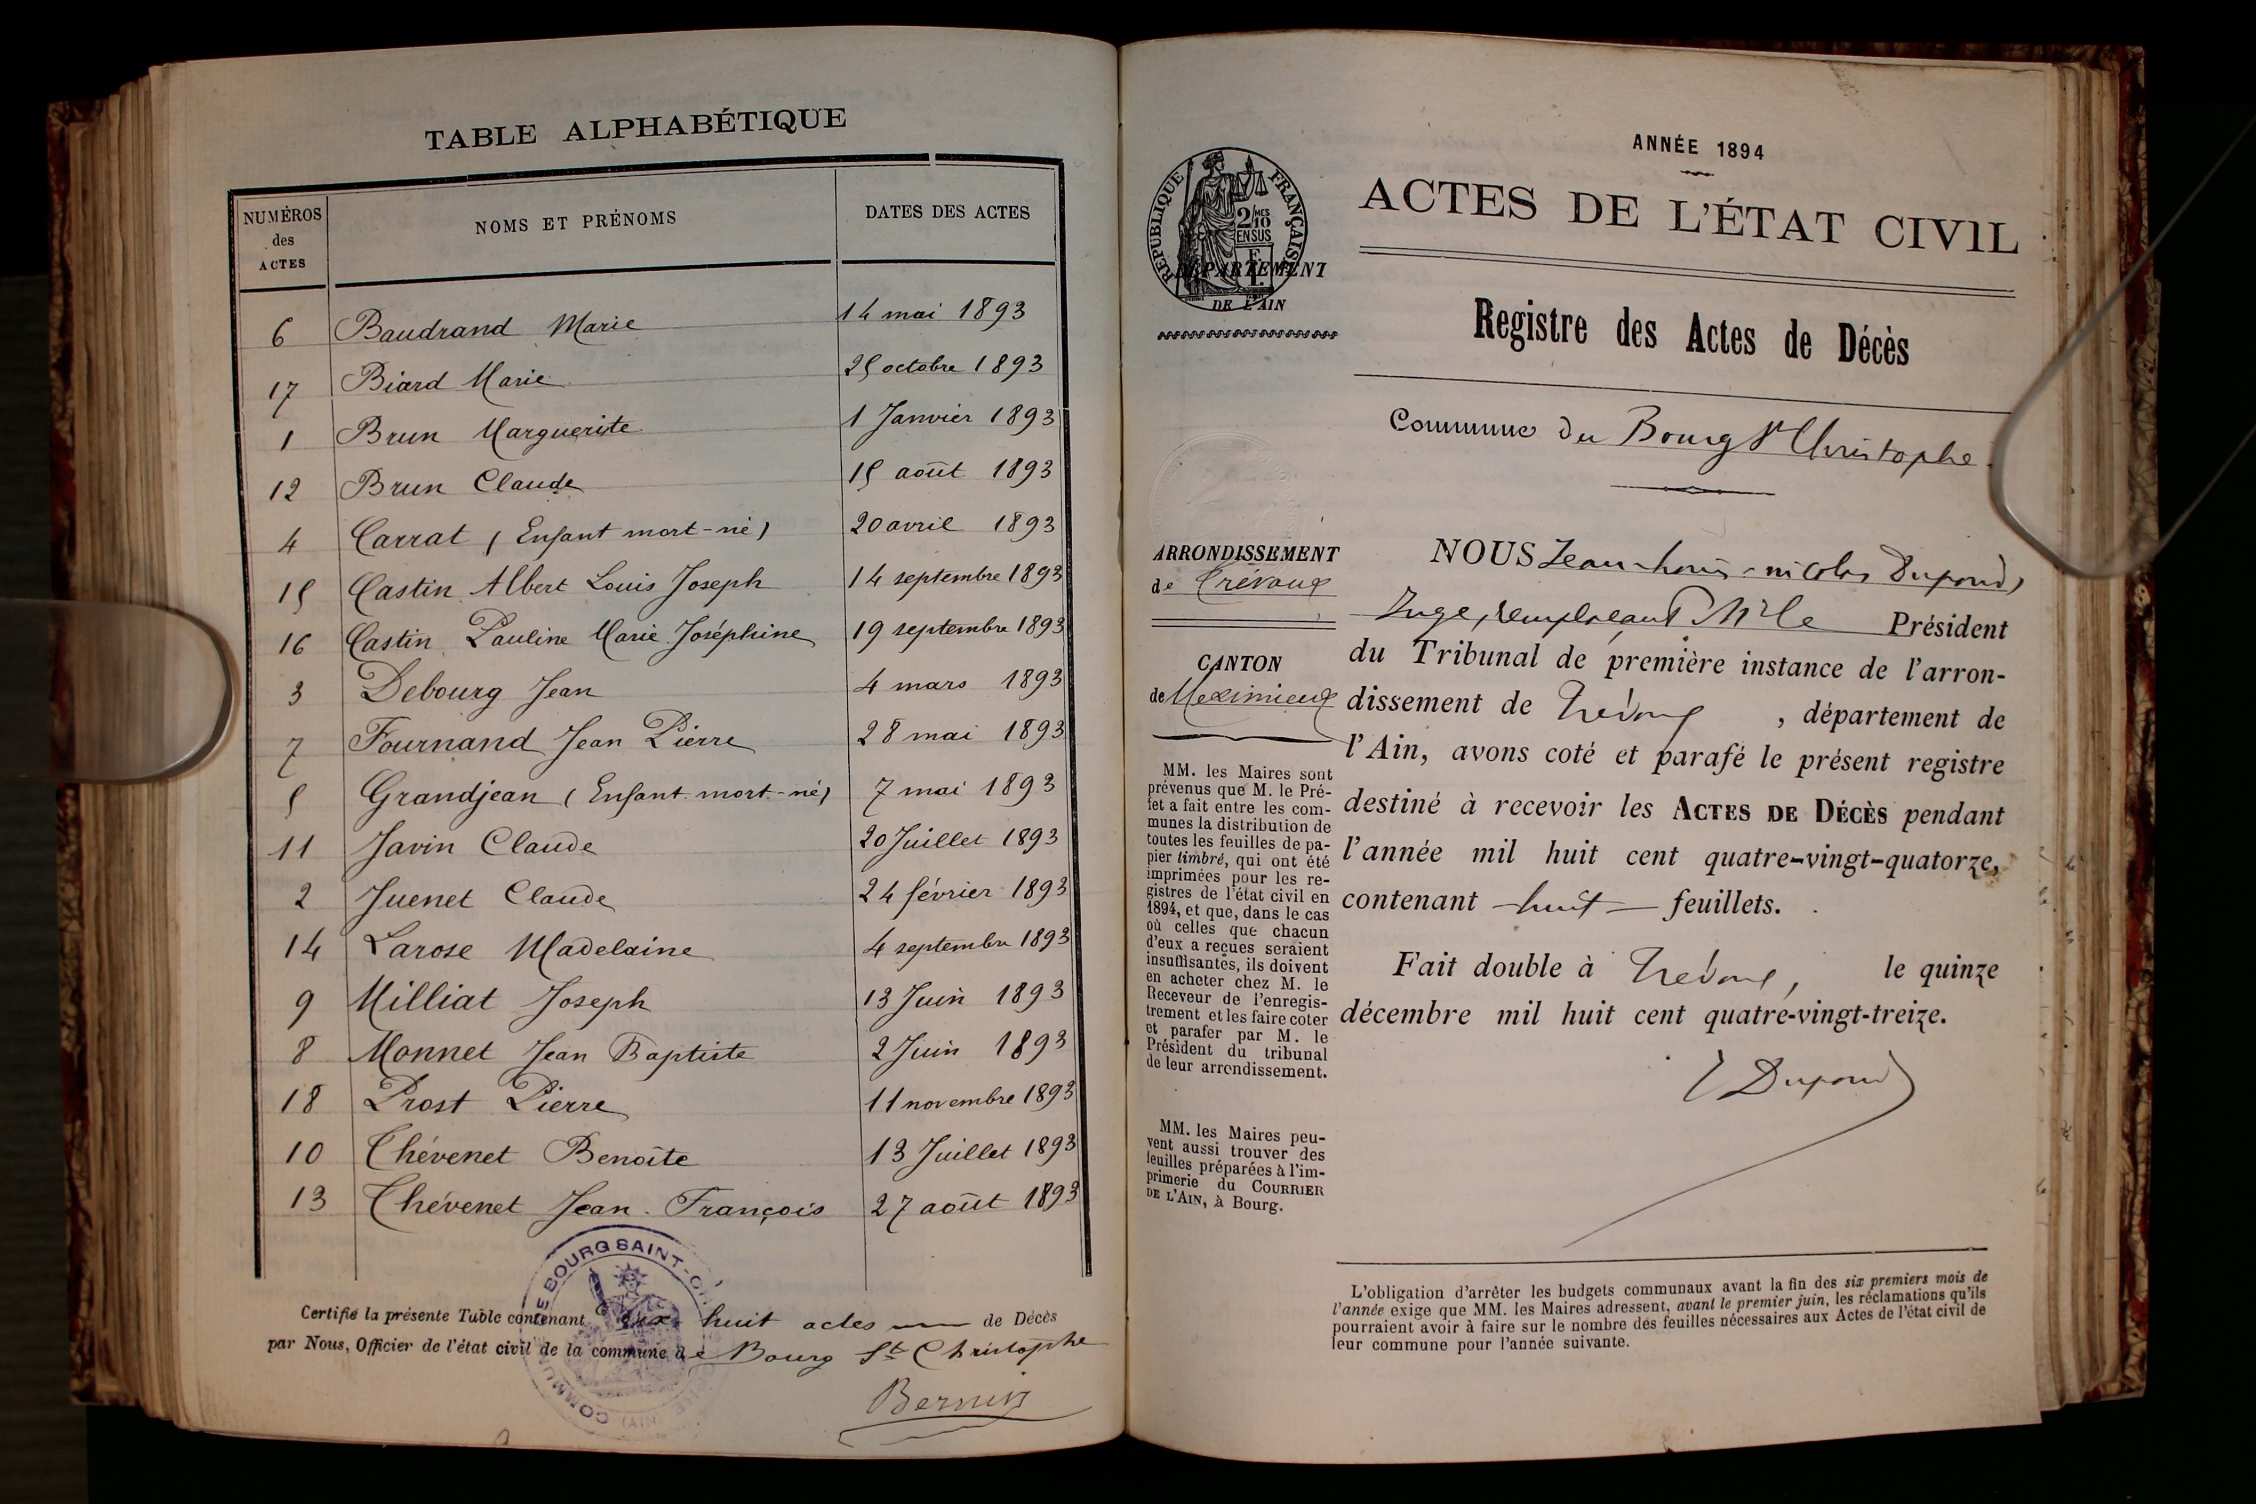 TABLE ALPHABÉTIQUE
NUMÉROS des ACTES NOMS ET PRÉNOMS DATES DES ACTES
6 Baudrand Marie 14 mai 1893
17 Biard Marie 25 octobre 1893
1 Brun Marguerite 1 Janvier 1893
12 Brun Claude 15 août 1893
4 Carrat (Enfant mort-né) 20 avril 1893
15 Castin Albert Louis Joseph 14 septembre 1893
16 Castin Pauline Marie Joséphine 19 septembre 1893
3 Debourg Jean 4 mars 1893
7 Fournand Jean Pierre 28 mai 1893
5 Grandjean (Enfant mort-né) 7 mai 1893
11 Javin Claude 20 Juillet 1893
2 Juenet Claude 24 février 1893
14 Larose Madelaine 4 septembre 1893
9 Milliat Joseph 13 Juin 1893
8 Monnet Jean Baptiste 2 Juin 1893
18 Prost Pierre 11 novembre 1893
10 Thévenet Benoîte 13 Juillet 1893
13 Thévenet Jean-François 27 août 1893
Certifié la présente Table contenant dix huit actes de Décès
par Nous, Officier de l'état civil de la commune de Bourg St Christophe
BOURG SAINT-
ANNÉE 1894
ACTES DE L'ÉTAT CIVIL
RÉPUBLIQUE FRANÇAISE
2 MES 10
EN SUS
DÉPARTEMENT
DE L'AIN
Registre des Actes de Décès
Commune du Bourg St Christophe.
ARRONDISSEMENT
de Trévoux
CANTON
de Meximieux
MM. les Maires sont
prévenus que M. le Pré-
fet a fait entre les com-
munes la distribution de
toutes les feuilles de pa-
pier timbré, qui ont été
imprimées pour les re-
gistres de l'état civil en
1894, et que, dans le cas
où celles que chacun
d'eux a reçues seraient
insuffisantes, ils doivent
en acheter chez M. le
Receveur de l'enregis-
trement et les faire coter
et parafer par M. le
Président du tribunal
de leur arrondissement.
MM. les Maires peu-
vent aussi trouver des
feuilles préparées à l'im-
primerie du COURRIER
DE L'AIN, à Bourg.
NOUS Jean-Louis-nicolas Dupond,
Juge, remplaçant Mr le Président
du Tribunal de première instance de l'arron-
dissement de Trévoux, département de
l'Ain, avons coté et parafé le présent registre
destiné à recevoir les ACTES DE DÉCÈS pendant
l'année mil huit cent quatre-vingt-quatorze,
contenant huit feuillets.
Fait double à Trévoux, le quinze
décembre mil huit cent quatre-vingt-treize.
Dupond
L'obligation d'arrêter les budgets communaux avant la fin des six premiers mois de
l'année exige que MM. les Maires adressent, avant le premier juin, les réclamations qu'ils
pourraient avoir à faire sur le nombre des feuilles nécessaires aux Actes de l'état civil de
leur commune pour l'année suivante.